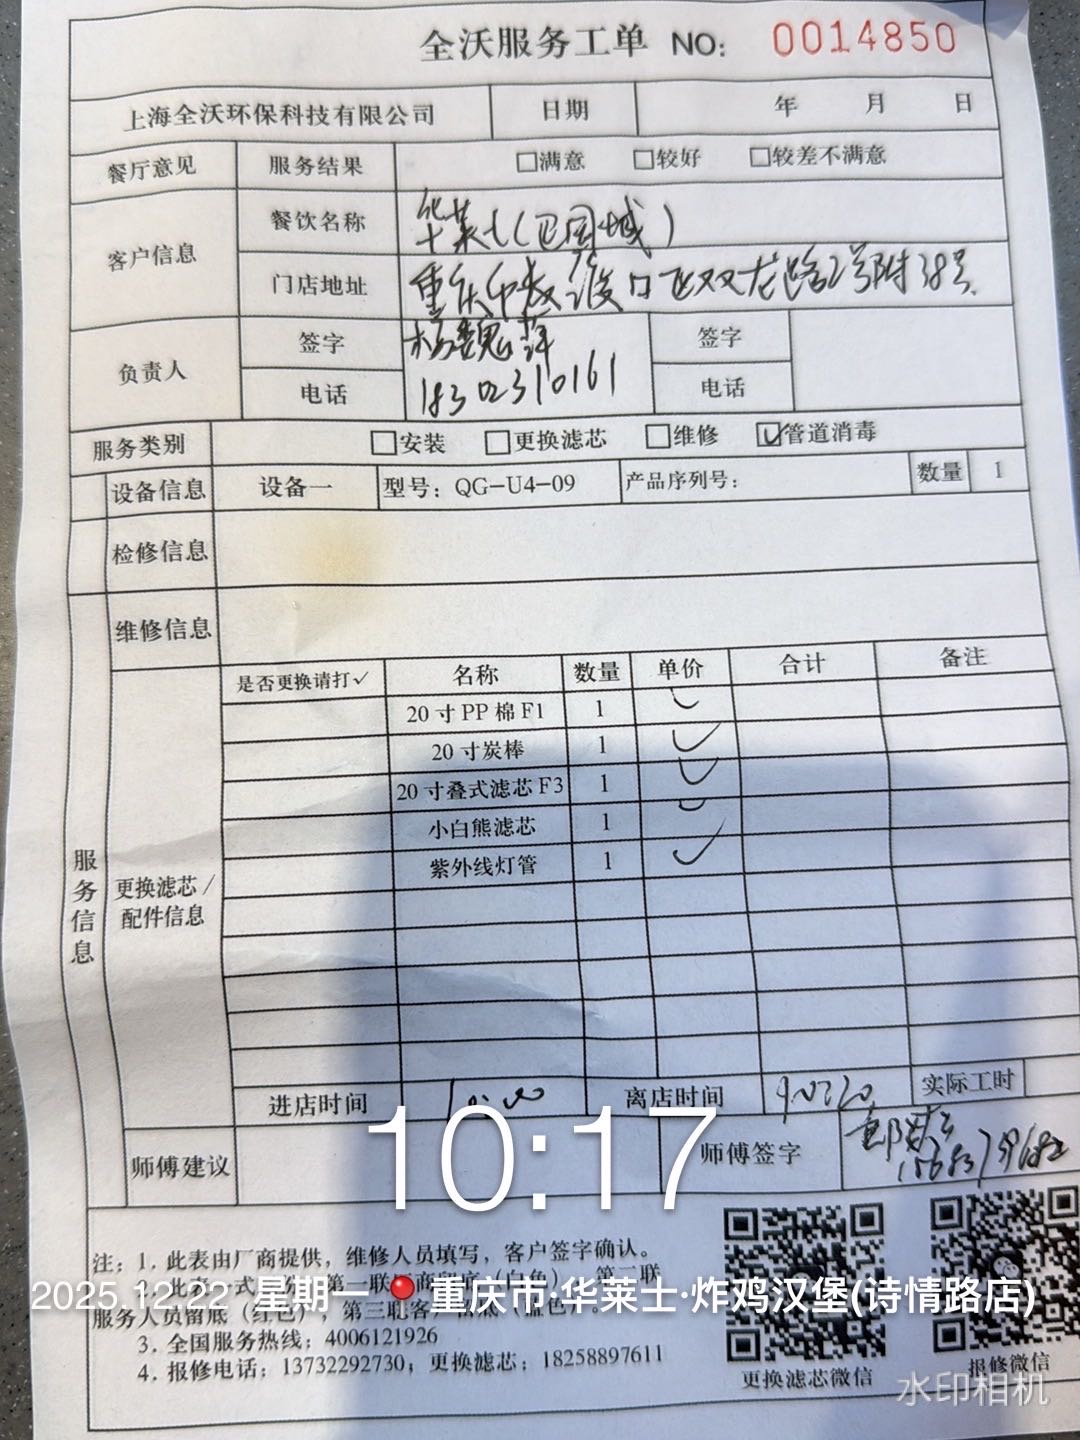 全沃服务工单 NO: 0014850
上海全沃环保科技有限公司 日期 年 月 日
餐厅意见 服务结果 □满意 □较好 □较差不满意
客户信息 餐饮名称 华莱士(卫国城)
门店地址 重庆市大渡口区双龙路2号附38号
负责人 签字 杨魏萍 签字
电话 18302310161 电话
服务类别 □安装 □更换滤芯 □维修 ☑管道消毒
设备信息 设备一 型号: QG-U4-09 产品序列号: 数量 1
检修信息
维修信息
服务信息
更换滤芯/配件信息
是否更换请打✓ 名称 数量 单价 合计 备注
20寸PP棉F1 1 ✓
20寸炭棒 1 ✓
20寸叠式滤芯F3 1 ✓
小白熊滤芯 1 ✓
紫外线灯管 1 ✓
进店时间 离店时间 实际工时
师傅建议 师傅签字
10:17
注: 1. 此表由厂商提供，维修人员填写，客户签字确认。
2. 此表一式 第一联 (白色) 第二联
2025.12.22 星期一 重庆市·华莱士·炸鸡汉堡(诗情路店)
服务人员留底（红色），第三联客
3. 全国服务热线: 4006121926
4. 报修电话: 13732292730; 更换滤芯: 18258897611
更换滤芯微信 报修微信
水印相机